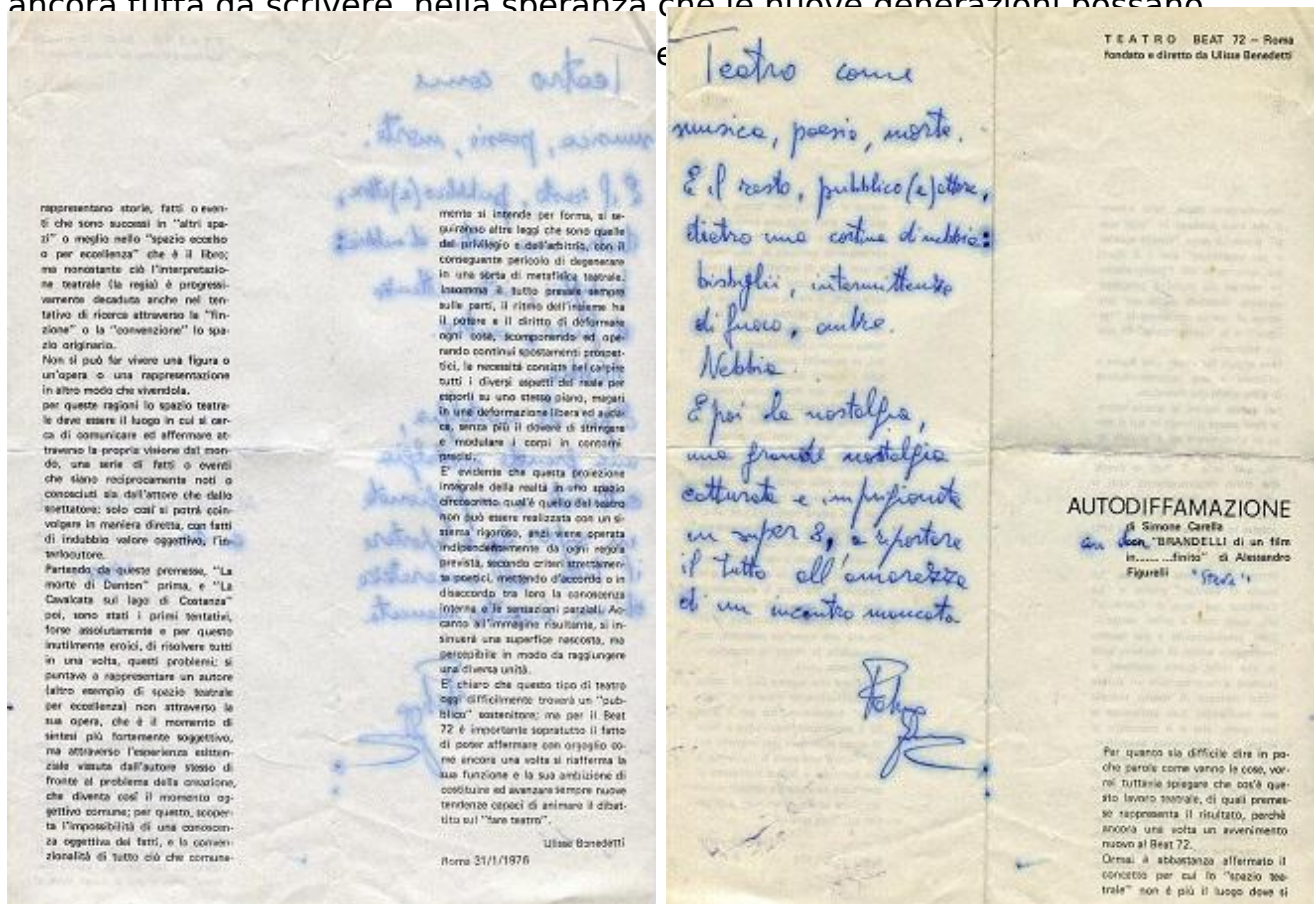 ancora tutta da scrivere, nella speranza che le nuove generazioni possano
rappresentano storie, fatti o even-
ti che sono successi in "altri spa-
zi" o meglio nello "spazio eccelso
o per eccellenza" che è il libro;
ma nonostante ciò l'interpretazio-
ne teatrale (la regia) è progressi-
vamente decaduta anche nel ten-
tativo di ricerca attraverso la "fin-
zione" o la "convenzione" lo spa-
zio originario.
Non si può far vivere una figura o
un'opera o una rappresentazione
in altro modo che vivendola.
per queste ragioni lo spazio teatra-
le deve essere il luogo in cui si cer-
ca di comunicare ed affermare at-
traverso la propria visione del mon-
do, una serie di fatti o eventi
che siano reciprocamente noti o
conosciuti sia dall'attore che dallo
spettatore; solo così si potrà coin-
volgere in maniera diretta, con fatti
di indubbio valore oggettivo, l'in-
terlocutore.
Partendo da queste premesse, "La
morte di Danton" prima, e "La
Cavalcata sul lago di Costanza"
poi, sono stati i primi tentativi,
forse assolutamente e per questo
inutilmente eroici, di risolvere tutti
in una volta, questi problemi; si
puntava a rappresentare un autore
(altro esempio di spazio teatrale
per eccellenza) non attraverso la
sua opera, che è il momento di
sintesi più fortemente soggettivo,
ma attraverso l'esperienza esisten-
ziale vissuta dall'autore stesso di
fronte al problema della creazione,
che diventa così il momento og-
gettivo comune; per questo, scoper-
ta l'impossibilità di una conoscen-
za oggettiva dei fatti, e la conven-
zionalità di tutto ciò che comune-
mente si intende per forma, si se-
guiranno altre leggi che sono quelle
del privilegio e dell'arbitrio, con il
conseguente pericolo di degenerare
in una sorta di metafisica teatrale.
Insomma il tutto prevale sempre
sulle parti, il ritmo dell'insieme ha
il potere e il diritto di deformare
ogni cosa, scomponendo ed ope-
rando continui spostamenti prospet-
tici, la necessità consiste nel carpire
tutti i diversi aspetti del reale per
esporli su uno stesso piano, magari
in una deformazione libera ed auda-
ce, senza più il dovere di stringere
e modulare i corpi in contorni
precisi.
E' evidente che questa proiezione
integrale della realtà in uno spazio
circoscritto qual'è quello del teatro
non può essere realizzata con un si-
stema rigoroso, anzi viene operata
indipendentemente da ogni regola
prevista, secondo criteri strettamen-
te poetici, mettendo d'accordo o in
disaccordo tra loro la conoscenza
interna e le sensazioni parziali. Ac-
canto all'immagine risultante, si in-
sinuerà una superfice nascosta, ma
percepibile in modo da raggiungere
una diversa unità.
E' chiaro che questo tipo di teatro
oggi difficilmente troverà un "pub-
blico" sostenitore; ma per il Beat
72 è importante sopratutto il fatto
di poter affermare con orgoglio co-
me ancora una volta si riafferma la
sua funzione e la sua ambizione di
costituire ed avanzare sempre nuove
tendenze capaci di animare il dibat-
tito sul "fare teatro".
Ulisse Benedetti
Roma 31/1/1976
Teatro come
musica, poesia, morte.
E il resto, pubblico(e)attore,
dietro una cortina di nebbia:
bisbiglii, intermittenze
di fuoco, ombre.
Nebbia.
E poi la nostalgia,
una grande nostalgia
catturata e imprigionata
in super 8, a riportare
il tutto all'amarezza
di un incontro mancato.
TEATRO BEAT 72 – Roma
fondato e diretto da Ulisse Benedetti
AUTODIFFAMAZIONE
di Simone Carella
con "BRANDELLI di un film
in........finito" di Alessandro
Figurelli
Per quanto sia difficile dire in po-
che parole come vanno le cose, vor-
rei tuttavia spiegare che cos'è que-
sto lavoro teatrale, di quali premes-
se rappresenta il risultato, perchè
ancora una volta un avvenimento
nuovo al Beat 72.
Ormai è abbastanza affermato il
concetto per cui lo "spazio tea-
trale" non è più il luogo dove si